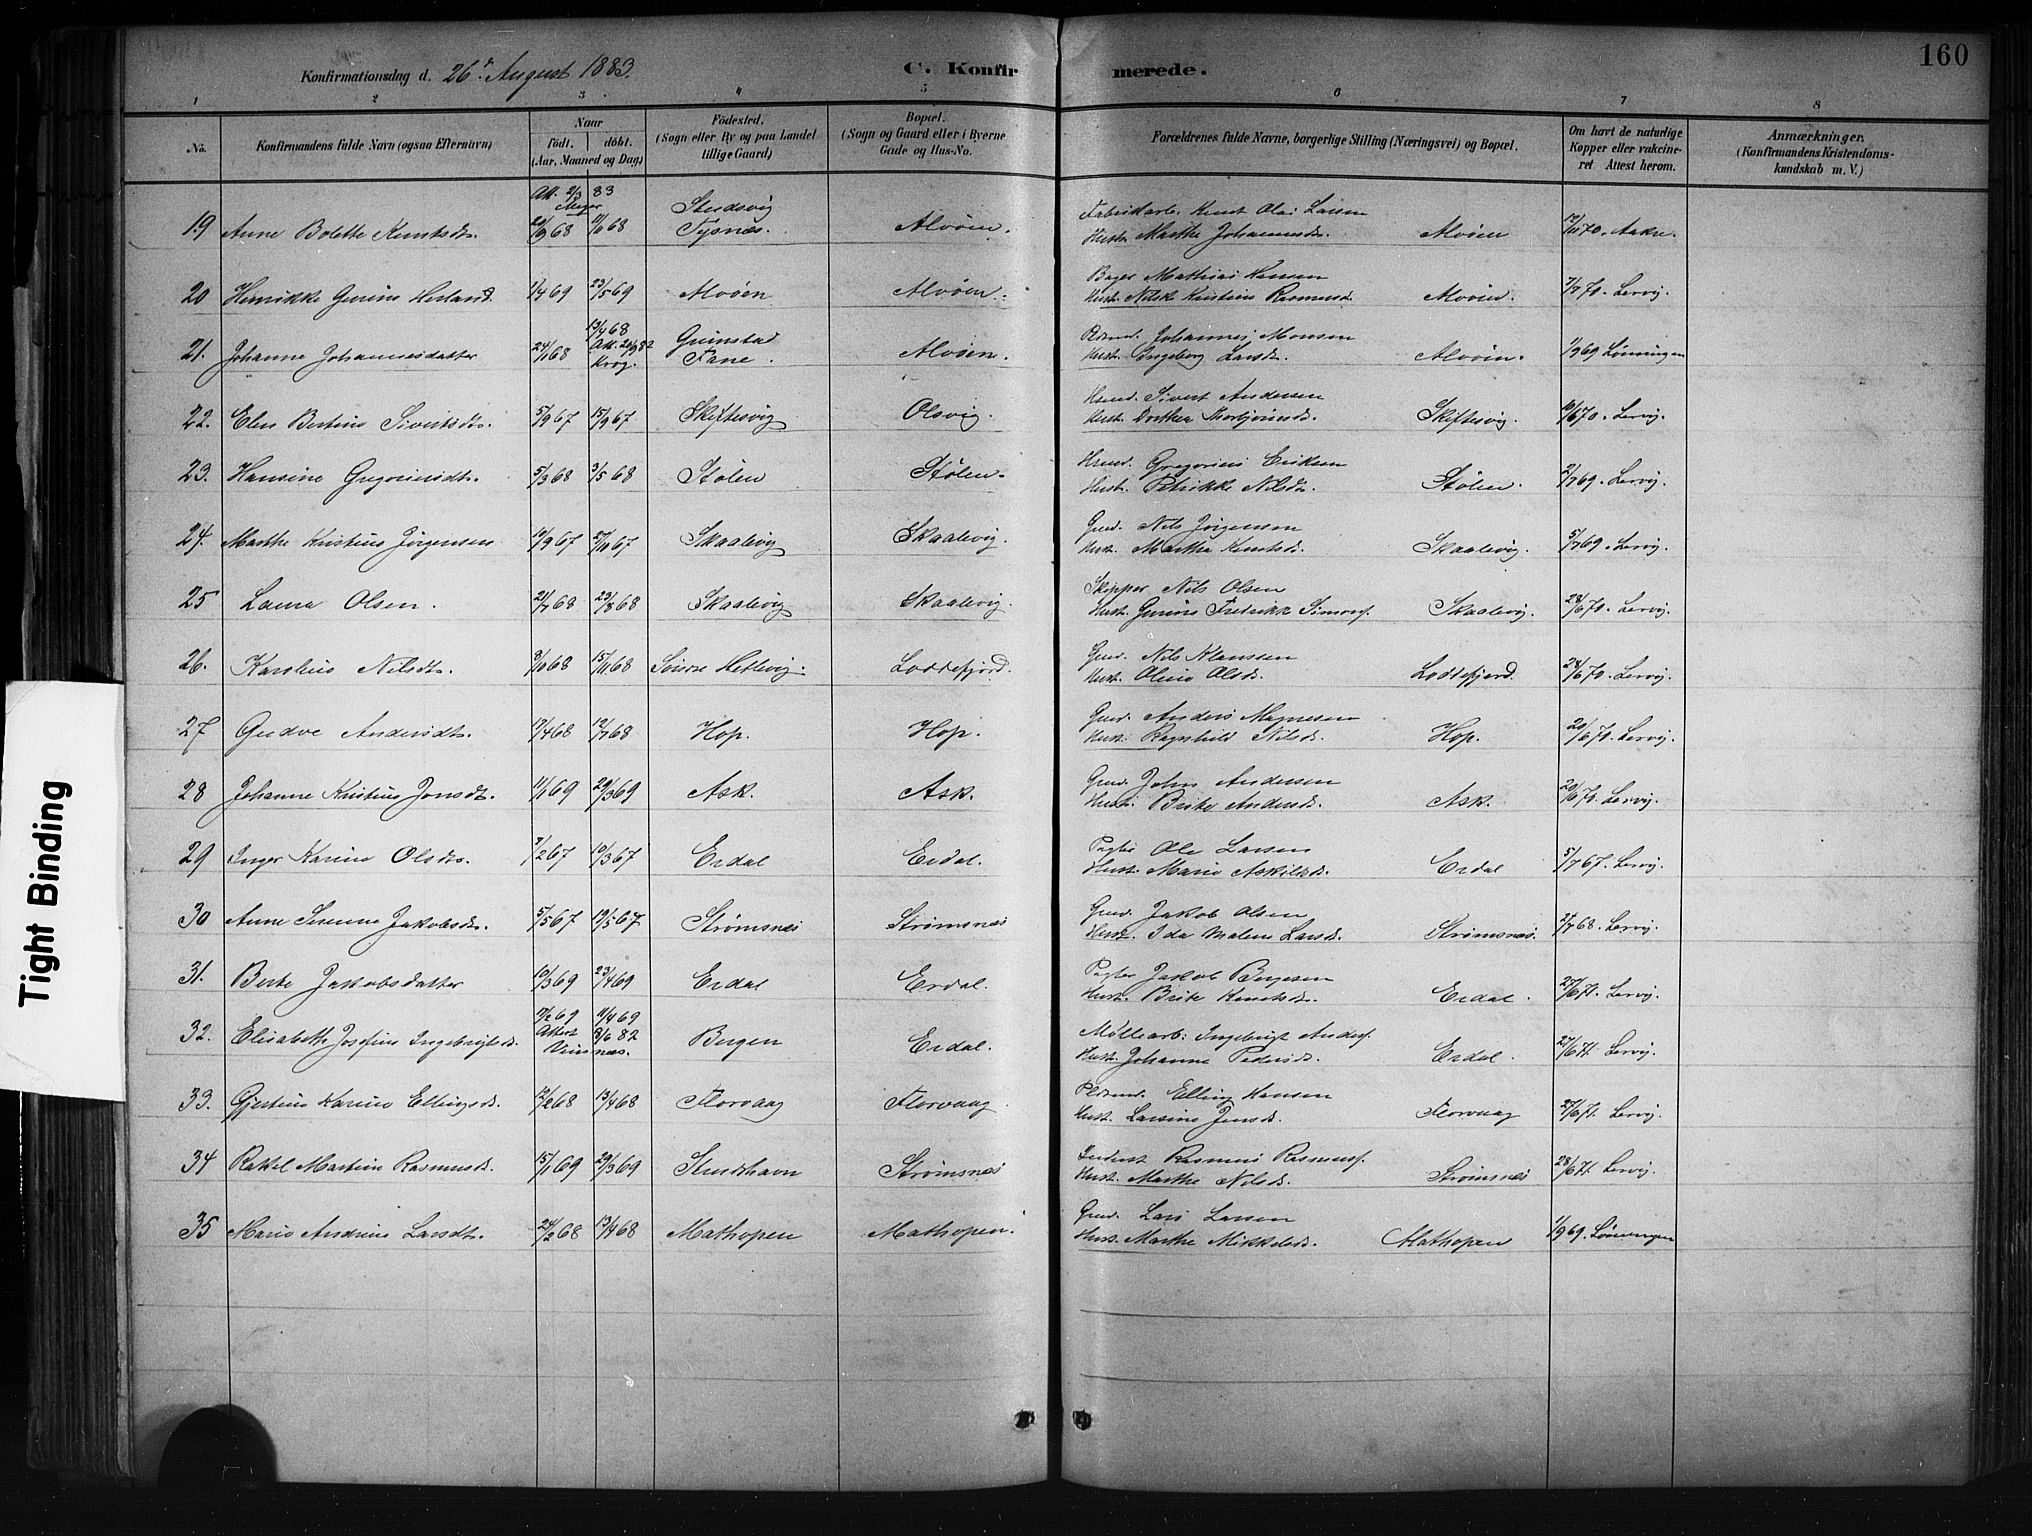 160
Konfirmationsdag d. 26de August 1883.
C. Konfirmerede.
1 2 3 4 5 6 7 8
No. Konfirmandens fulde Navn (ogsaa Efternavn) Naar födt. döbt. (Aar, Maaned og Dag) Födested. (Sogn eller By og paa Landet tillige Gaard) Bopæl. (Sogn og Gaard eller i Byerne Gade og Hus-No. Forældrenes fulde Navne, borgerlige Stilling (Næringsvei) og Bopæl. Om havt de naturlige Kopper eller vakcineret Attest herom. Anmærkninger. (Konfirmandens Kristendomskundskab m. V.)
Att. 2/3 83
19 Anne Bolette Knutsdr. 20/9 68 11/10 68 Tysnæs. Alvøen. Fabrikarb. Knut Olai Larsen
Hust. Marthe Johannesdr. Alvöen 12/11 70. Aakre.
20 Henrikke Gurine Herland 1/4 69 23/5 69 Alvøen Alvøen. Bager Mathias Hansen
Hust. Nilske Kristine Rasmusd. Alvöen. 7/7 70. Lervig.
21. Johanne Johannesdatter 24/1 68 13/4 68 Att. Krog. Grimstad Fane. Alvøen. Johannes Monsen
Hust. Ingeborg Larsdr. Alvöen. 1/9 69 Lønningen
22. Elen Bertine Sivertsdr. 5/9 67 15/9 67 Skiftesvig Olsvig. Hmd. Sivert Andersen
Hust. Dorthea Skiftesvig. 10/6 70. Lervig.
23. Hansine Gregoriusdt. 5/3 68 3/5 68 Stölen Stölen. Hmd. Gregorius Eriksen
Hust. Petrikke Nilsdt. Stölen. 2/7 69. Lervig.
24. Marthe Kristine Jørgensen 10/9 67 27/10 67 Skaalevig Skaalevig. Gmd. Nils Jørgensen
Hust. Martha Knutsd. Skaalevig. 5/7 69. Lervig.
25 Laura Olsen. 21/7 68 23/8 68 Skaalevig Skaalevig. Skipper Nils Olsen
Hust. Gurine Fredrikke Simonsf. Skaalevig. 28/6 70. Lervig.
26. Karoline Nilsdt. 3/10 68 15/11 68 Söirre Hetlevig. Loddefjord. Gmd. Nils Klaussen
Hust. Oline Olsdr. Loddefjord. 28/6 70. Lervig.
27 Gudve Andersdt. 17/4 68 12/7 68 Hop. Hop. Gmd. Anders Magnesen
Hust. Ragnhild Nilsdr. Hop. 20/6 70. Lervig.
28 Johanne Kristine Jonsdt. 11/1 69 29/3 69 Ask. Ask. Gmd. John Andersen
Hust. Brite Andersdr. Ask. 20/6 70. Lervig.
29 Inger Karine Olsdr. 3/2 67 10/3 67 Erdal Erdal. Pagter Ole Larsen
Hust. Marie Askildsdr. Erdal 5/7 67. Lervig.
30 Anne Serene Jakobsdr. 5/5 67 19/5 67 Strömsnæs Strömsnæs Gmd. Jakob Olsen
Hust. Ida Malene Larsdr. Strömsnæs. 21/7 68. Lervig.
31. Berte Jakobsdatter 10/3 69 23/4 69 Erdal Erdal. Pagter Jakob Børgesen
Hust. Brite Knutsdr. Erdal. 27/6 71. Lervig.
32. Elisabeth Josefine Ingebrigtsd. 7/2 69 11/4 69 Attest 3/6 82 Bergen Erdal. Möllearb. Ingebrigt Andersf.
Hust. Johanne Pedersdr. Erdal. 27/6 71. Lervig.
33. Gjertine Karine Ellingsd. 12/2 68 13/4 68 Florvaag Florvaag. Elling Hansen
Hust. Larsine Jensdr. Florvaag 27/6 71. Lervig.
34 Rakel Martine Rasmusd. 15/1 69 29/3 69 Strudshavn Strömsnæs Inderst Rasmus Rasmusf.
Hust. Marthe Nilsdr. Strömsnæs 28/6 71. Lervig.
35 Marie Andrine Larsdt. 24/2 68 13/4 68 Mathopen Mathopen. Gmd. Lars Larsen
Hust. Marthe Mikkelsdr. Mathopen 1/9 69. Lønningen
Tight Binding